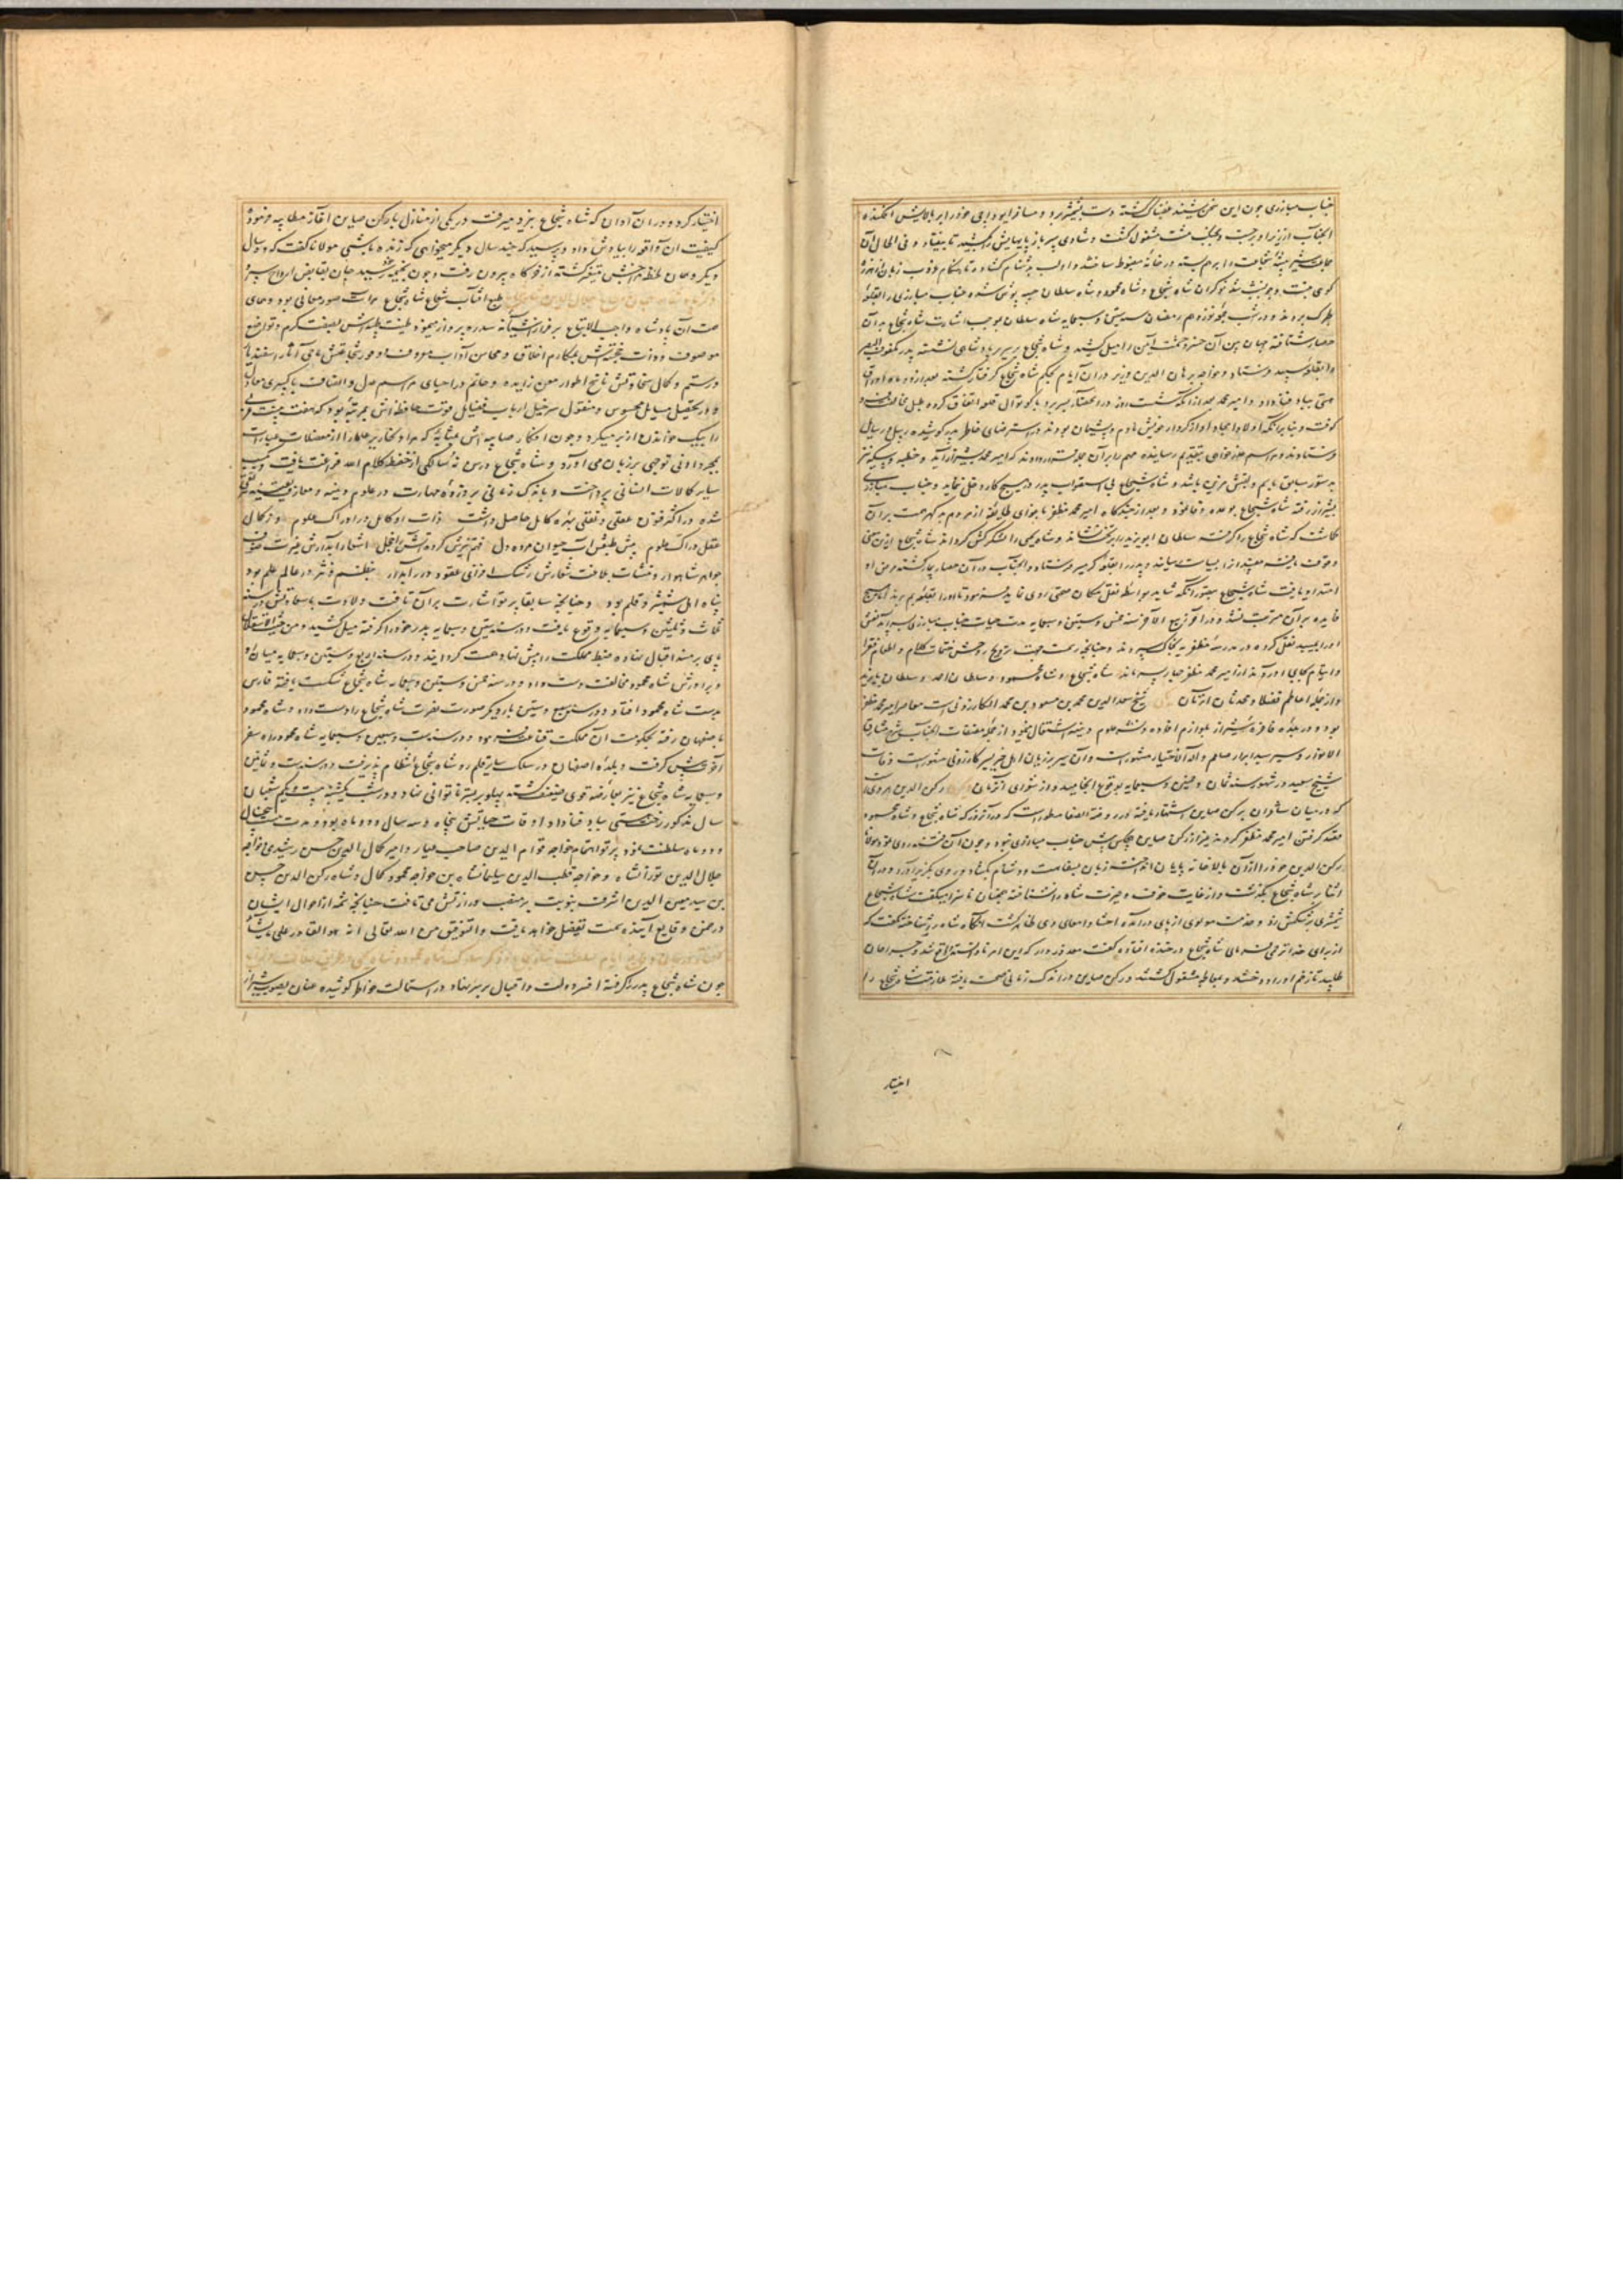 جناب مبارزی چون این سخن شنید غضبناک گشته دست بشمشیر برد و مسافر ابوداجی خود را بر بالایش افکنده
آنجناب از زیر او برجست و بجنگ مشت مشغول گشت
کوی بجست و چون شب شد نوکران شاه شجاع و شاه محمود و شاه سلطان جیبه پوش شده جناب مبارزی را بقلعه
طبرک بردند و در شب جمعه نوزدهم رمضان سنه ستین و سبعمایه شاه سلطان بموجب اشارت شاه شجاع بدان
حصار شتافته جهان بین آن خسرو حشمت آیین را میل کشید و شاه شجاع بر سریر پادشاهی نشسته پدر مکفوف البصر
را بقلعه سپید فرستاد و خواجه برهان الدین وزیر در آن ایام بحکم شاه شجاع گرفتار گشته بعد از دو ماه اوراق
هستی بباد فنا داد و امیر محمد بعد از آنکه شست روز در آن حصار بسر برد با کوتوال قلعه اتفاق کرده طبل مخالفت
کوفت و بنا بر آنکه اولاد امجاد او از کردار خویش نادم و پشیمان بودند در استرضای خاطر پدر کوشیده رسل و رسایل
فرستادند و مراسم عذرخواهی بتقدیم رسانیده مهم را بر آن جمله قرار دادند که امیر محمد بشیراز آید و خطبه و سکه نیز
بدستور سابق بنام و لقبش مزین باشد و شاه شجاع بی استصواب پدر در هیچ کار دخل ننماید و جناب مبارزی
بشیراز رفته شاه شجاع بوعده وفا نمود و بعد از چندگاه امیر محمد مظفر باغوای طایفه از مردم بدگهر همت بر آن
گماشت که شاه شجاع را گرفته سلطان ابویزید را بر تخت نشاند و شاه یحیی را لشکرکش گرداند شاه شجاع ازین معنی
وقوف یافته مفسدان را بسیاست رسانید و پدر را بقلعه گرمسیر فرستاد و آنجناب در آن حصار بیمار گشته مرض او
امتداد یافت شاه شجاع بتصور آنکه شاید بواسطه نقل مکان صحتی روی نماید فرمود تا او را بقلعه بم بردند اما هیچ
فایده بر آن مترتب نشد و در آخر ربیع الآخر سنه خمس و ستین و سبعمایه مدت حیات جناب مبارزی بسر آمد نعش
او را بمیبد نقل کرده در مدرسه مظفریه بخاک سپردند
از امیر محمد مظفر چهار پسر ماند شاه شجاع و شاه محمود و سلطان احمد و سلطان بایزید
و از جمله اعاظم فضلا و محدثان آن زمان شیخ سعد الدین محمد بن مسعود بن محمد الکازرونی است معاصر امیر محمد مظفر
بود و در بلده فاخره شیراز بلوازم افاده و نشر علوم دینیه اشتغال مینمود از جمله مصنفات آنجناب شرح مشارق
الانوار و سیر سید ابرار صلعم و آله الاخیار مشهور است و آن سیر بر زبان اهل خبر بسیر کازرونی مشهور است وفات
شیخ سعید در شهور سنه ثمان و خمسین و سبعمایه بوقوع انجامید و از شعرای آنزمان رکن الدین هروی است
که در میان شاعران برکن صاین اشتهار یافته و در روضة الصفا مسطور است که در آن روز که شاه شجاع و شاه محمود
قصد گرفتن امیر محمد مظفر کردند غیر از رکن صاین هیچکس پیش جناب مبارزی نبود و چون آن فتنه روی نمود مولانا
رکن الدین خود را از آن بالاخانه بپایان انداخت زبان بسفاهت و دشنام بگشاد و روی بگریز آورد و در آن
اثنا بر شاه شجاع بگذشت و از غایت خوف و حیرت شاه را نشناخته همچنان ناسزا میگفت شاه شجاع
شمشیری بر شکمش زد و خدمت مولوی از پای درآمده احشاء و امعای وی ظاهر گشت آنگاه شاه را شناخته گفت که
از برای خدا ترحمی فرمای شاه شجاع در خنده افتاده گفت معذور دار که این امر نادانسته واقع شد و جراحان
طلبید تا زخم او را دوختند و بمعالجه مشغول گشتند و رکن صاین در اندک زمانی صحت یافته ملازمت شاه شجاع را
اختیار
اختیار کرد و در آن آوان که شاه شجاع بیزد میرفت در یکی از منازل با رکن صاین آغاز مطایبه فرمود
کیفیت آن واقعه را بیادش داد و پرسید که چند سال دیگر میخواهی که زنده باشی مولانا گفت که ده سال
دیگر و همان لحظه مزاجش متغیر گشته از خرگاه بیرون رفت و چون بخیمه رسید جان بقابض ارواح سپرد
طبع آفتاب شعاع شاه شجاع مرآت صور معانی بود و همای
همت آن پادشاه واجب الاتباع بر فراز آشیانه سدره پرواز مینمود طینت پسندیده‌اش بصفت کرم و تواضع
موصوف و ذات خجسته‌اش بمکارم اخلاق و محاسن آداب معروف وفور شجاعتش ماحی آثار اسفندیار
و رستم و کمال سخاوتش ناسخ اطوار معن زایده و حاتم در احیای مراسم عدل و انصاف با کسری معادل
و در تحصیل مسایل محسوس و معقول سرخیل ارباب فضایل قوت حافظه‌اش بمرتبه بود که هفت هشت بیت عربی
را بیک خواندن از بر میکرد
شاه شجاع در سن نه سالگی از حفظ کلام الله فراغت یافت و بکسب
سایر کمالات انسانی پرداخت و باندک زمانی بر وزوه مهارت در علوم دینیه و معارف یقینیه
شده در اکثر فنون عقلی و نقلی بهره کامل حاصل داشت ذات او کامل در ادراک علوم وز کمال
عقل دراک علوم پیش طبعش آب حیوان مرده دل فهم تیزش کرده آتش را خجل
جواهر شاهوار و منشآت بلاغت شعارش رشک افزای عقود درر آبدار بنظم و نثر در عالم علم بود
پناه اهل شمشیر و قلم بود و چنانچه سابقا پرتو اشارت بر آن تافت ولادت با سعادتش در سنه
ثلاث و ثلثین و سبعمایه وقوع یافت و در سنه ستین و سبعمایه پدر خود را گرفته میل کشید و من حیث الاستقلال
پای بر مسند اقبال نهاده ضبط مملکت را پیش نهاد همت گردانید و در سنه اربع و ستین و سبعمایه میان او
و برادرش شاه محمود مخالفت دست داد و در سنه خمس و ستین و سبعمایه شاه شجاع شکست یافته فارس
بدست شاه محمود افتاد و در سنه سبع و ستین بار دیگر صورت نصرت شاه شجاع را دست داد و شاه محمود
باصفهان رفته بحکومت آن مملکت قناعت نمود و در سنه ست و سبعین و سبعمایه شاه محمود راه سفر
آخرت پیش گرفت و بلده اصفهان در سلک سایر قلمرو شاه شجاع انتظام پذیرفت و در سنه ست و ثمانین
و سبعمایه شاه شجاع نیز بعارضه قوی ضعیف گشته پهلو بر بستر ناتوانی نهاد و در شب یکشنبه بیست و یکم شعبان
سال مذکور رخت هستی بباد فنا داد اوقات حیاتش پنجاه و سه سال و دو ماه بود و مدت
و دو ماه سلطنت نمود پرتو اهتمام خواجه قوام الدین صاحب عیار و امیر کمال الدین حسن رشیدی و خواجه
جلال الدین تورانشاه و خواجه قطب الدین سلیمانشاه بن خواجه محمود کمال و شاه رکن الدین حسن
بن سید معین الدین اشرف بنوبت بر منصب وزارتش می‌تافت چنانچه شمه از احوال ایشان
در ضمن وقایع آینده سمت تفصیل خواهد یافت و التوفیق من الله تعالی انه هو القادر علی ما یشاء
چون شاه شجاع پدر را گرفته افسر دولت و اقبال بر سر نهاد و در استمالت خواطر کوشیده عنان بصوب شیراز